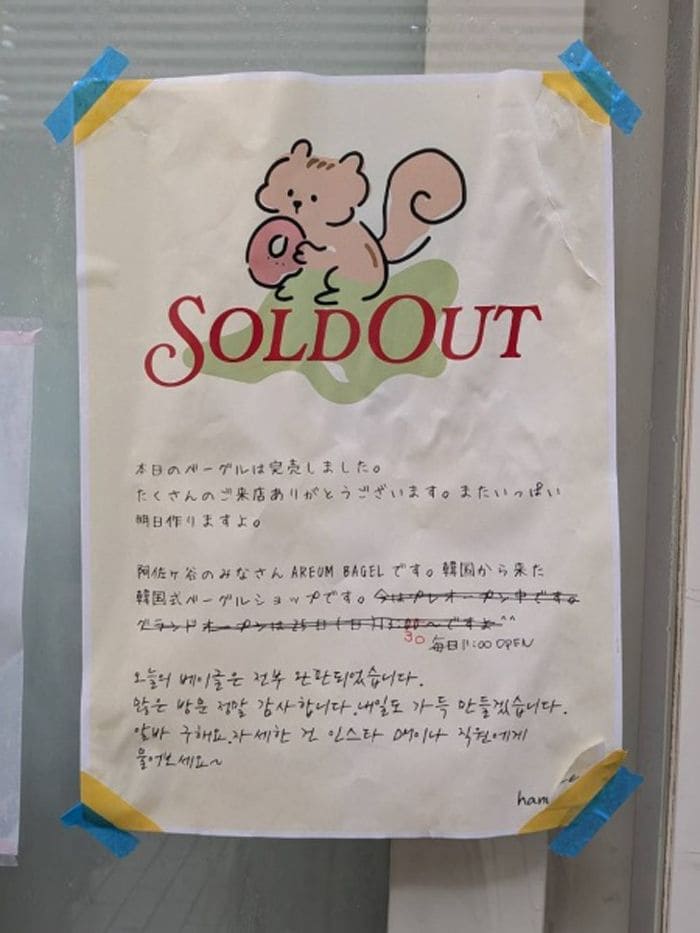 SOLD OUT
本日のベーグルは完売しました。
たくさんのご来店ありがとうございます。またいっぱい
明日作りますよ。
阿佐ヶ谷のみなさん AREUM BAGEL です。韓国から来た
韓国式ベーグルショップです。今はプレオープン中です。
グランドオープンは25日(日)13:00~ですよ^^
30
毎日11:00 OPEN
오늘의 베이글은 전부 완판되었습니다.
많은 방문 정말 감사합니다. 내일도 가득 만들겠습니다.
알바 구해요. 자세한 건 인스타 DM이나 직원에게
물어보세요~
ham